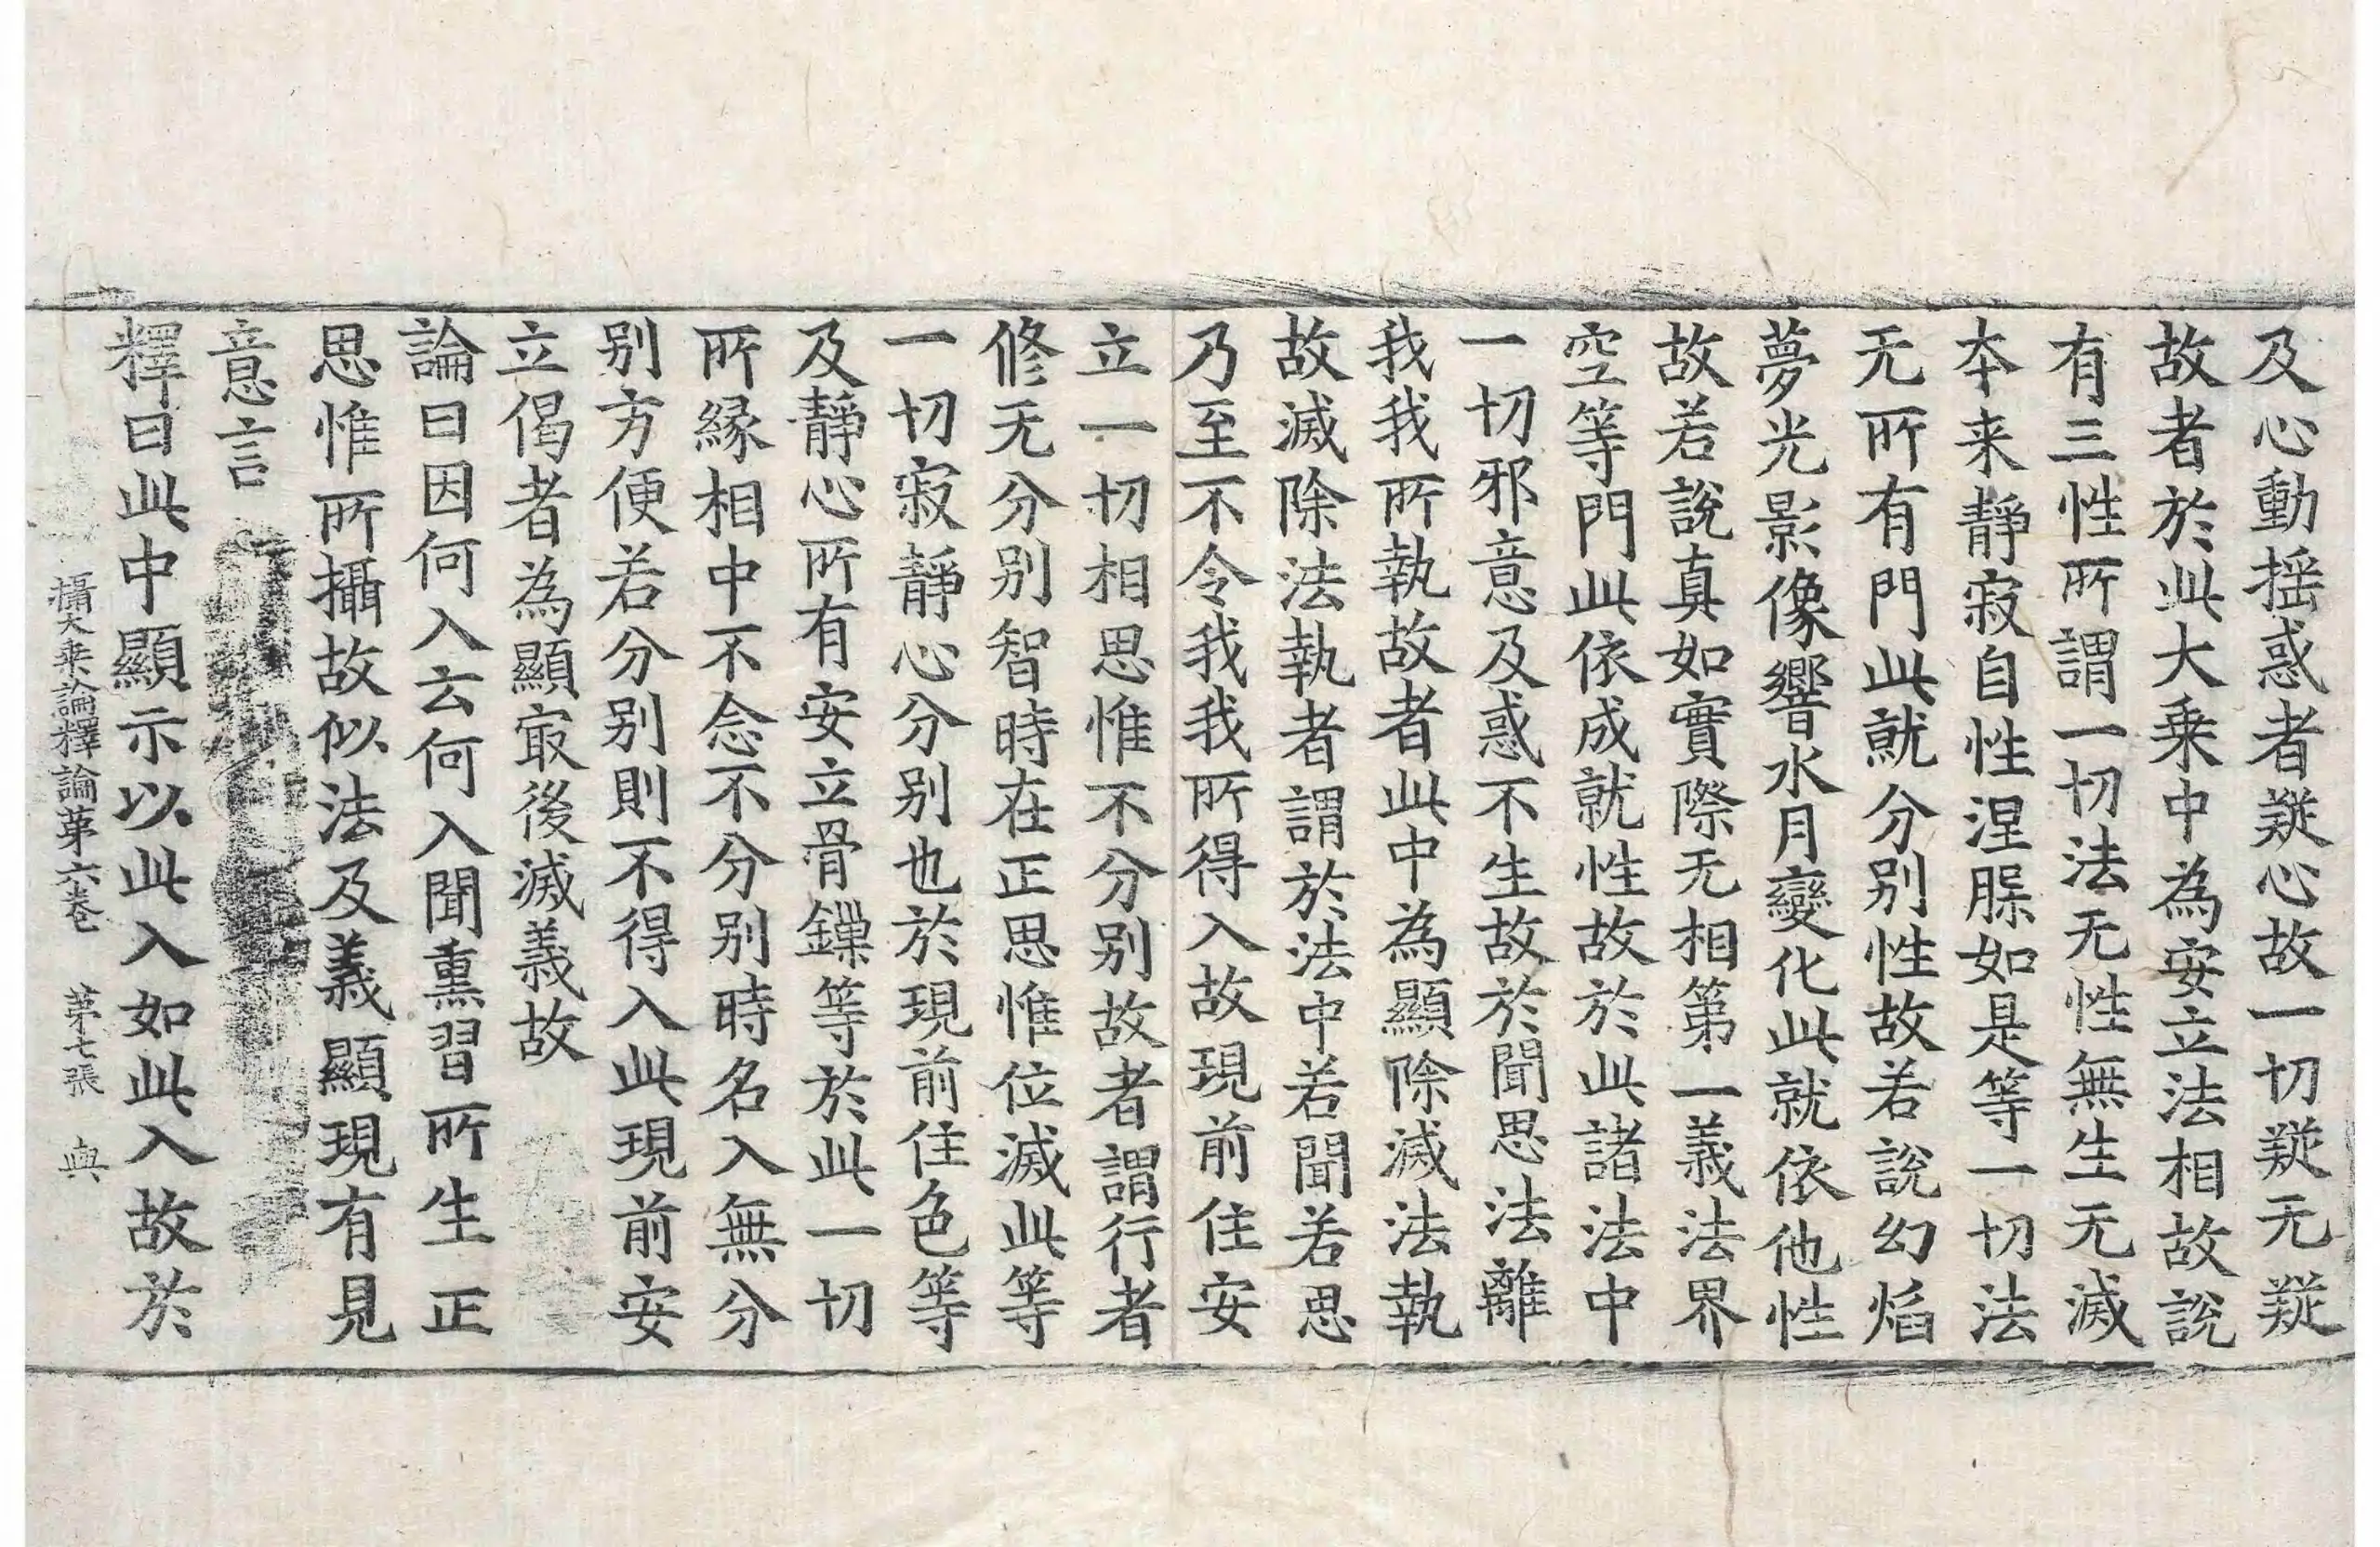 及心動揺惑者疑心故一切疑无疑
故者於此大乗中為安立法相故說
有三性所謂一切法无性無生无滅
本来靜寂自性涅槃如是等一切法
无所有門此就分别性故若說幻焰
夢光影像響水月變化此就依他性
故若說真如實際无相第一義法界
空等門此依成就性故於此諸法中
一切邪意及惑不生故於聞思法離
我我所執故者此中為顯除滅法執
故滅除法執者謂於法中若聞若思
乃至不令我我所得入故現前住安
立一切相思惟不分别故者謂行者
修无分别智時在正思惟位滅此等
一切寂靜心分别也於現前住色等
及靜心所有安立骨鏁等於此一切
所縁相中不念不分别時名入無分
别方便若分别則不得入此現前安
立偈者為顯㝡後滅義故
論曰因何入云何入聞熏習所生正
思惟所攝故似法及義顯現有見
意言
釋曰此中顯示以此入如此入故於
攝大乗論釋論第六卷 第七張 典